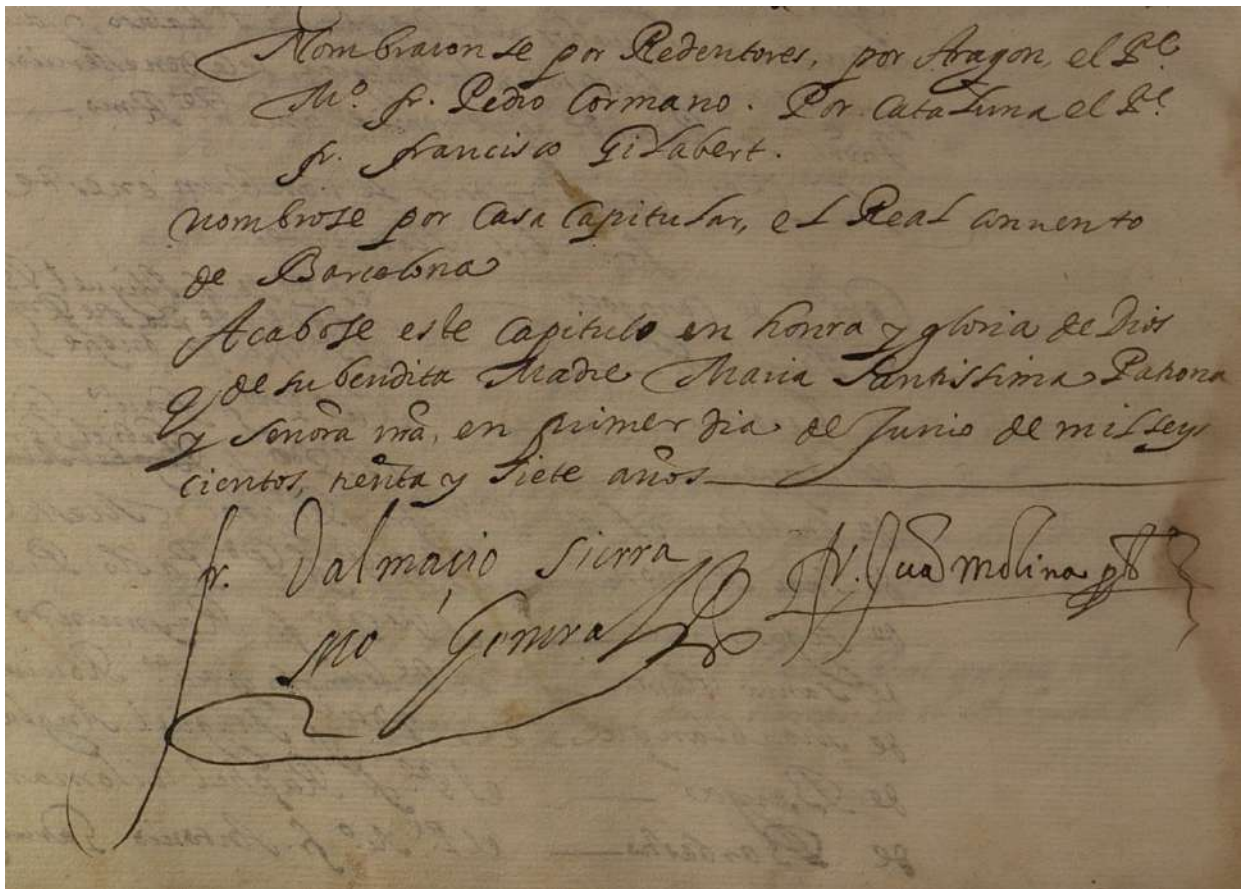 Nombraron se por Redentores, por Aragon, el Pe.
Mo. fr. Pedro Cormano. Por Cataluna el Pe.
fr. francisco Gilabert.
nombrose por Casa Capitular, el Real conuento
de Barcelona
Acabose este Capitulo en honra y gloria de Dios
y de su bendita Madre Maria Santissima Patrona
y Senora nra, en primer dia de Junio de mil seys
cientos, trenta y siete años
fr. Dalmacio Sierra
Mo General
fr. Juā Molina